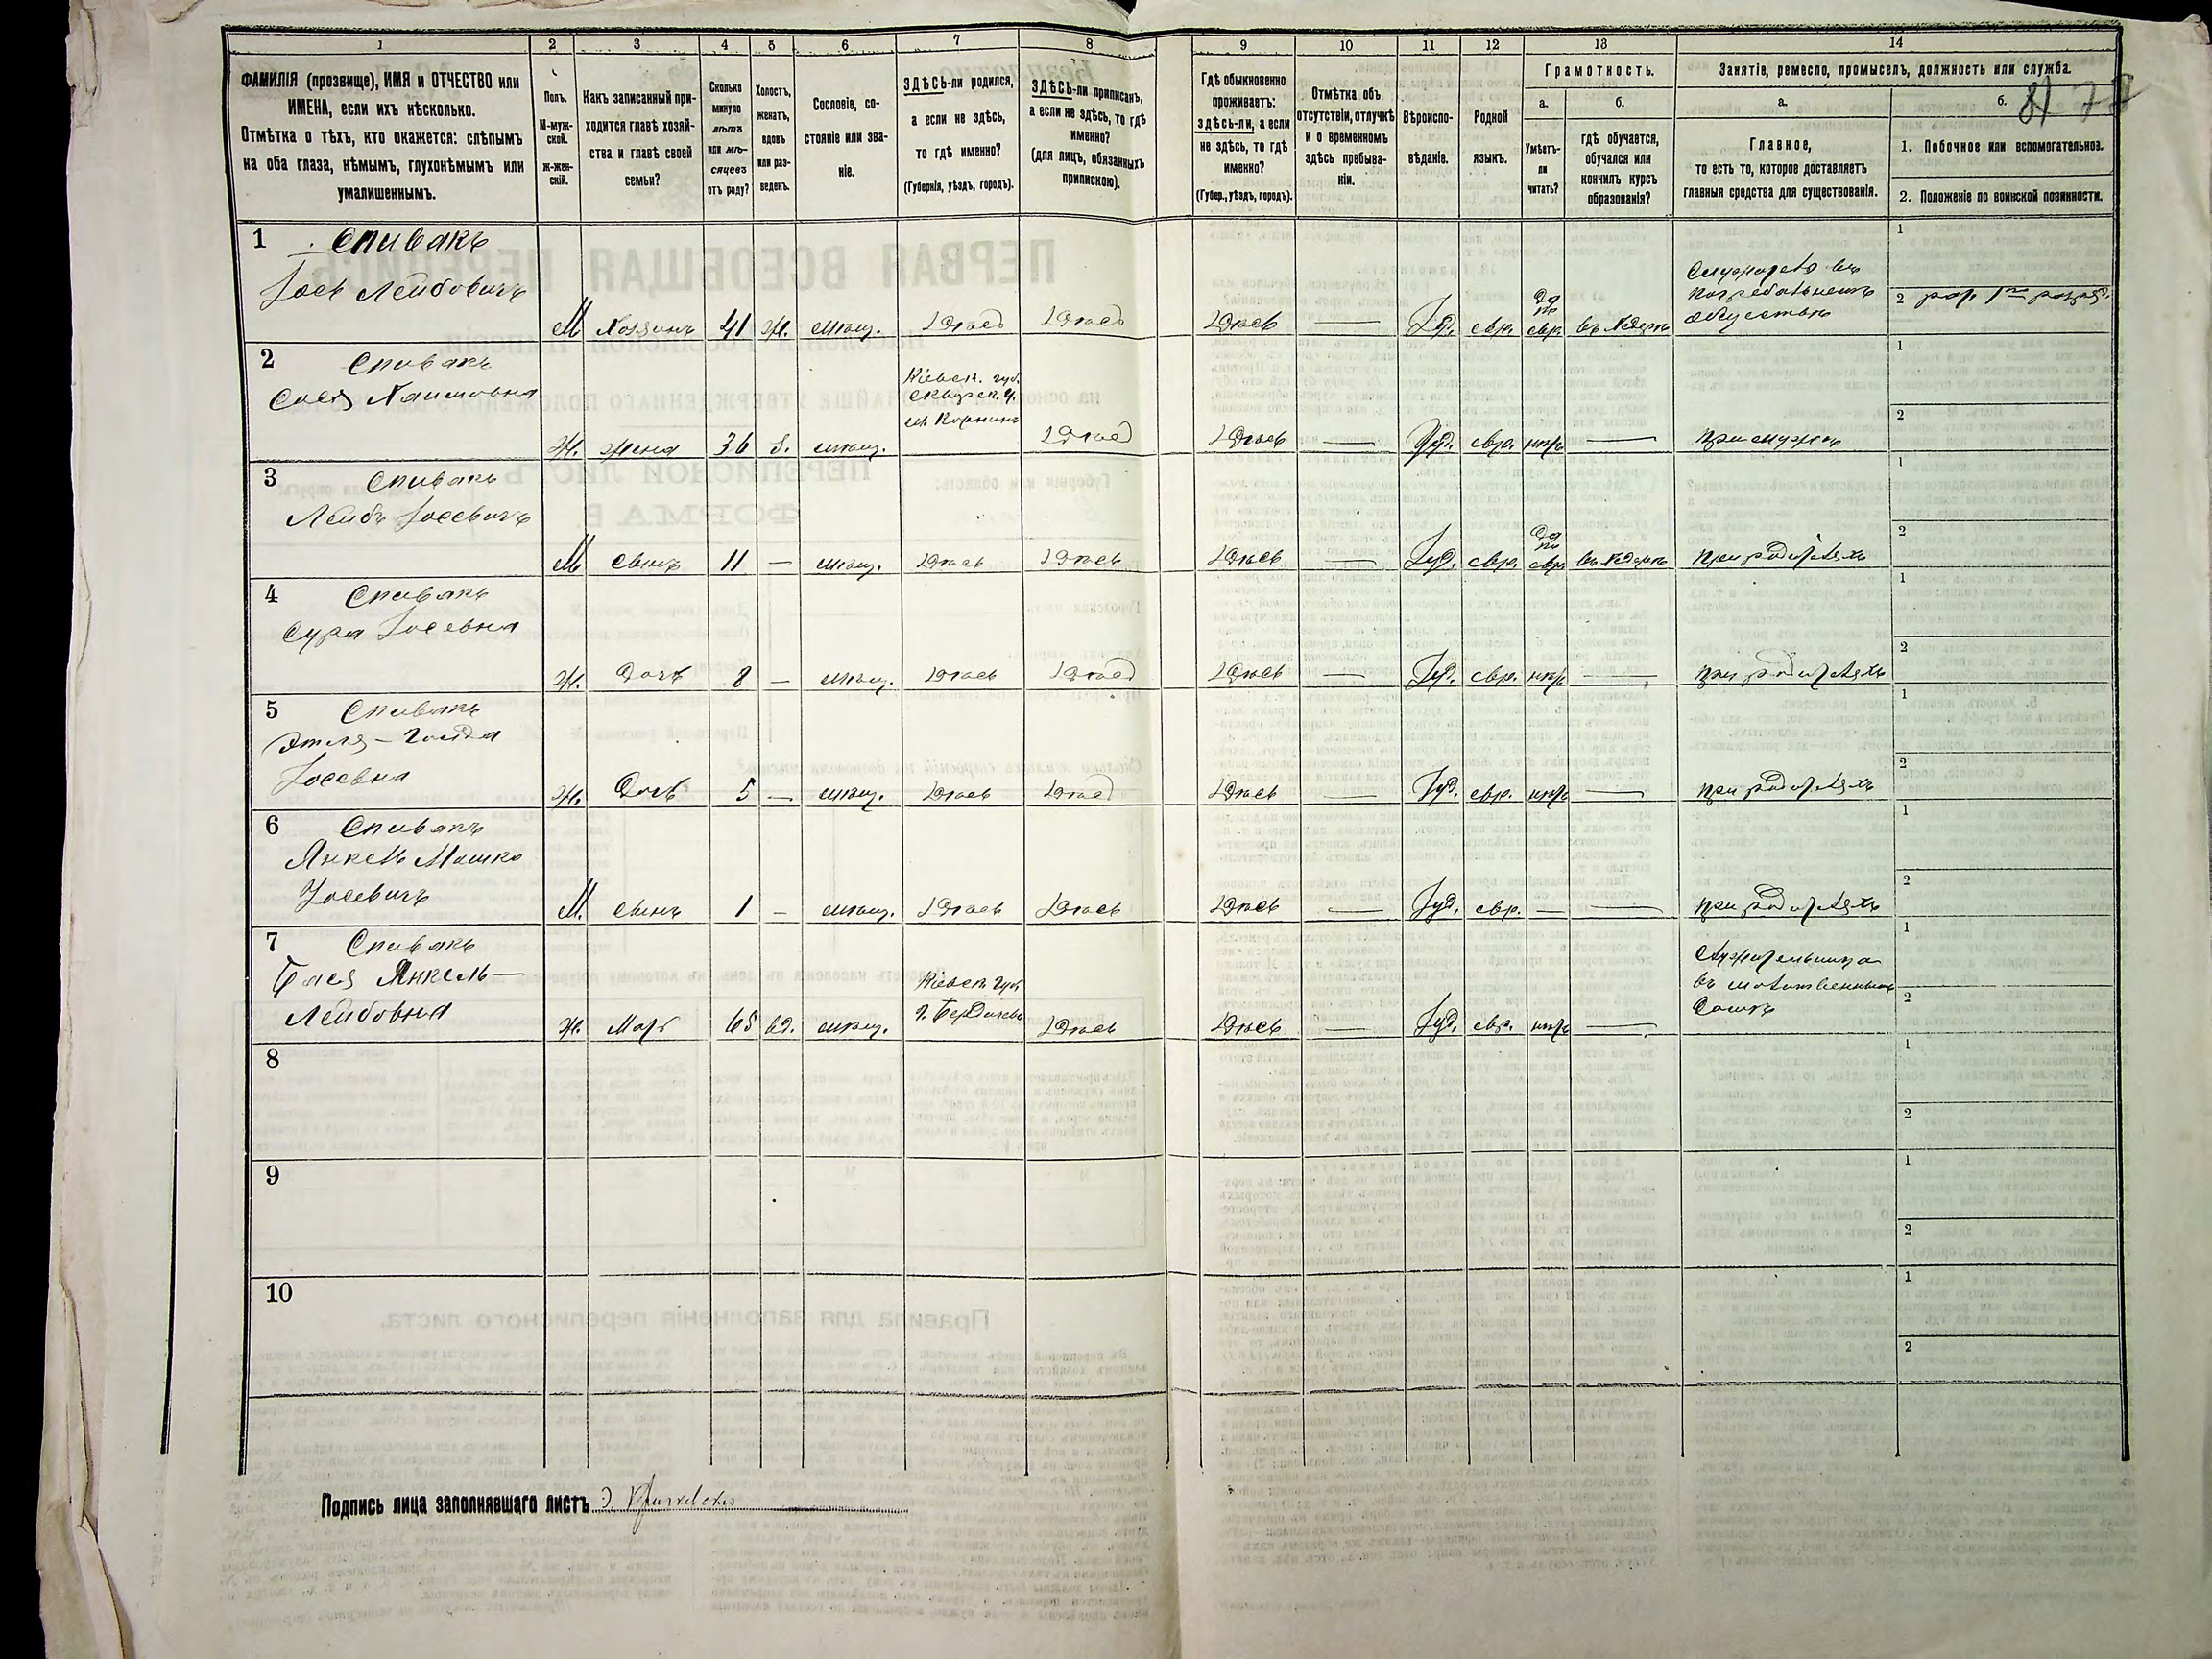 1 2 3 4 5 6 7 8 9 10 11 12 13 14
ФАМИЛІЯ (прозвище), ИМЯ и ОТЧЕСТВО или
ИМЕНА, если ихъ нѣсколько.
Отмѣтка о тѣхъ, кто окажется: слѣпымъ
на оба глаза, нѣмымъ, глухонѣмымъ или
умалишеннымъ.
Полъ.
М-муж-
ской.
Ж-жен-
скій.
Какъ записанный при-
ходится главѣ хозяй-
ства и главѣ своей
семьи?
Сколько
минуло
лѣтъ
или мѣ-
сяцевъ
отъ роду?
Холостъ,
женатъ,
вдовъ
или раз-
веденъ.
Сословіе, со-
стояніе или зва-
ніе.
ЗДѢСЬ-ли родился,
а если не здѣсь,
то гдѣ именно?
(Губернія, уѣздъ, городъ).
ЗДѢСЬ-ли приписанъ,
а если не здѣсь, то гдѣ
именно?
(для лицъ, обязанныхъ
припискою).
Гдѣ обыкновенно
проживаетъ:
здѣсь-ли, а если
не здѣсь, то гдѣ
именно?
(Губер., уѣздъ, городъ).
Отмѣтка объ
отсутствіи, отлучкѣ
и о временномъ
здѣсь пребыва-
ніи.
Вѣроиспо-
вѣданіе.
Родной
языкъ.
Грамотность.
а.
Умѣетъ-
ли
читать?
б.
гдѣ обучается,
обучался или
кончилъ курсъ
образованія?
Занятіе, ремесло, промыселъ, должность или служба.
а.
Главное,
то есть то, которое доставляетъ
главныя средства для существованія.
б.
1. Побочное или вспомогательное.
2. Положеніе по воинской повинности.
1 Спивакъ
Іось Лейбовичъ
М Хозяинъ 41 Ж. мѣщ. Здѣсь Здѣсь Здѣсь — Іуд. евр. евр. въ хедерѣ
Служитель въ
погребальномъ
обществѣ
1
2
2 Спивакъ
Сося Хаимовна
Ж. жена 36 З. мѣщ.
Кіевск. губ.
Сквирск. у.
м. Корнинъ
Здѣсь Здѣсь — Іуд. евр. нѣтъ — при мужѣ
1
2
3 Спивакъ
Лейбъ Іосевичъ
М сынъ 11 — мѣщ. Здѣсь Здѣсь Здѣсь — Іуд. евр. евр. въ хедерѣ при родителяхъ
1
2
4 Спивакъ
Сура Іосевна
Ж. дочь 8 — мѣщ. Здѣсь Здѣсь Здѣсь — Іуд. евр. нѣтъ — при родителяхъ
1
2
5 Спивакъ
Этля — Голда
Іосевна
Ж. дочь 5 — мѣщ. Здѣсь Здѣсь Здѣсь — Іуд. евр. нѣтъ — при родителяхъ
1
2
6 Спивакъ
Янкель Мошко
Іосевичъ
М. сынъ 1 — мѣщ. Здѣсь Здѣсь Здѣсь — Іуд. евр. — — при родителяхъ
1
2
7 Спивакъ
Бася Янкель —
Лейбовна
Ж. Мать 65 вд. мѣщ.
Кіевск. губ.
г. Бердичевъ
Здѣсь Здѣсь — Іуд. евр. нѣтъ —
Служительница
въ молитвенномъ
домѣ
1
2
8
1
2
9
1
2
10
1
2
Подпись лица заполнявшаго листъ